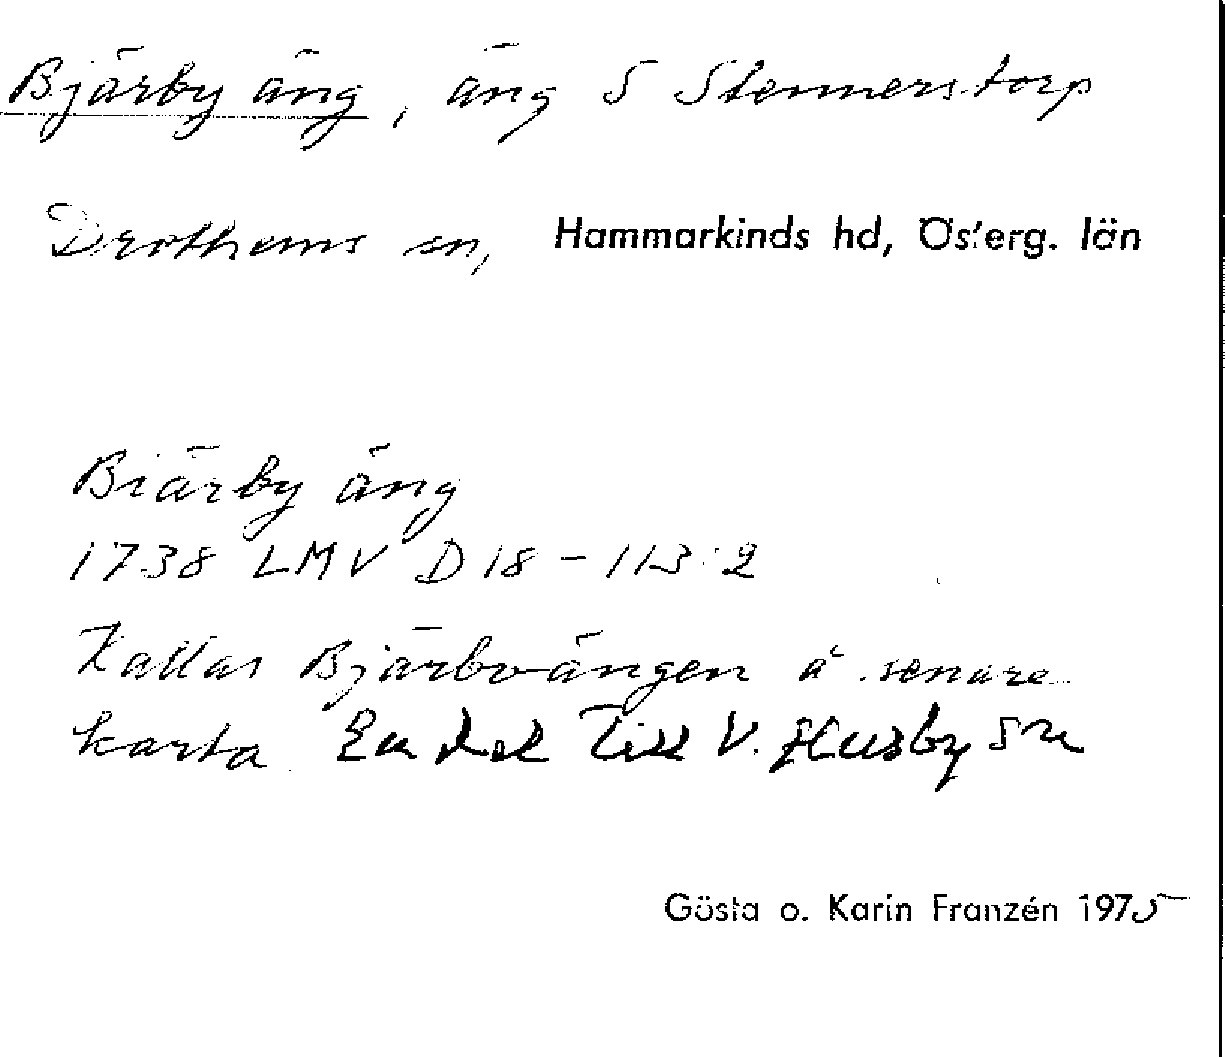 Bjärby äng, äng S Stennerstorp
Drothems sn, Hammarkinds hd, Österg. län
Biärby äng
1738 LMV D18-113:2
Kallas Bjärbyängen å senare
karta. En del till V. Husby sn
Gösta o. Karin Franzén 1975